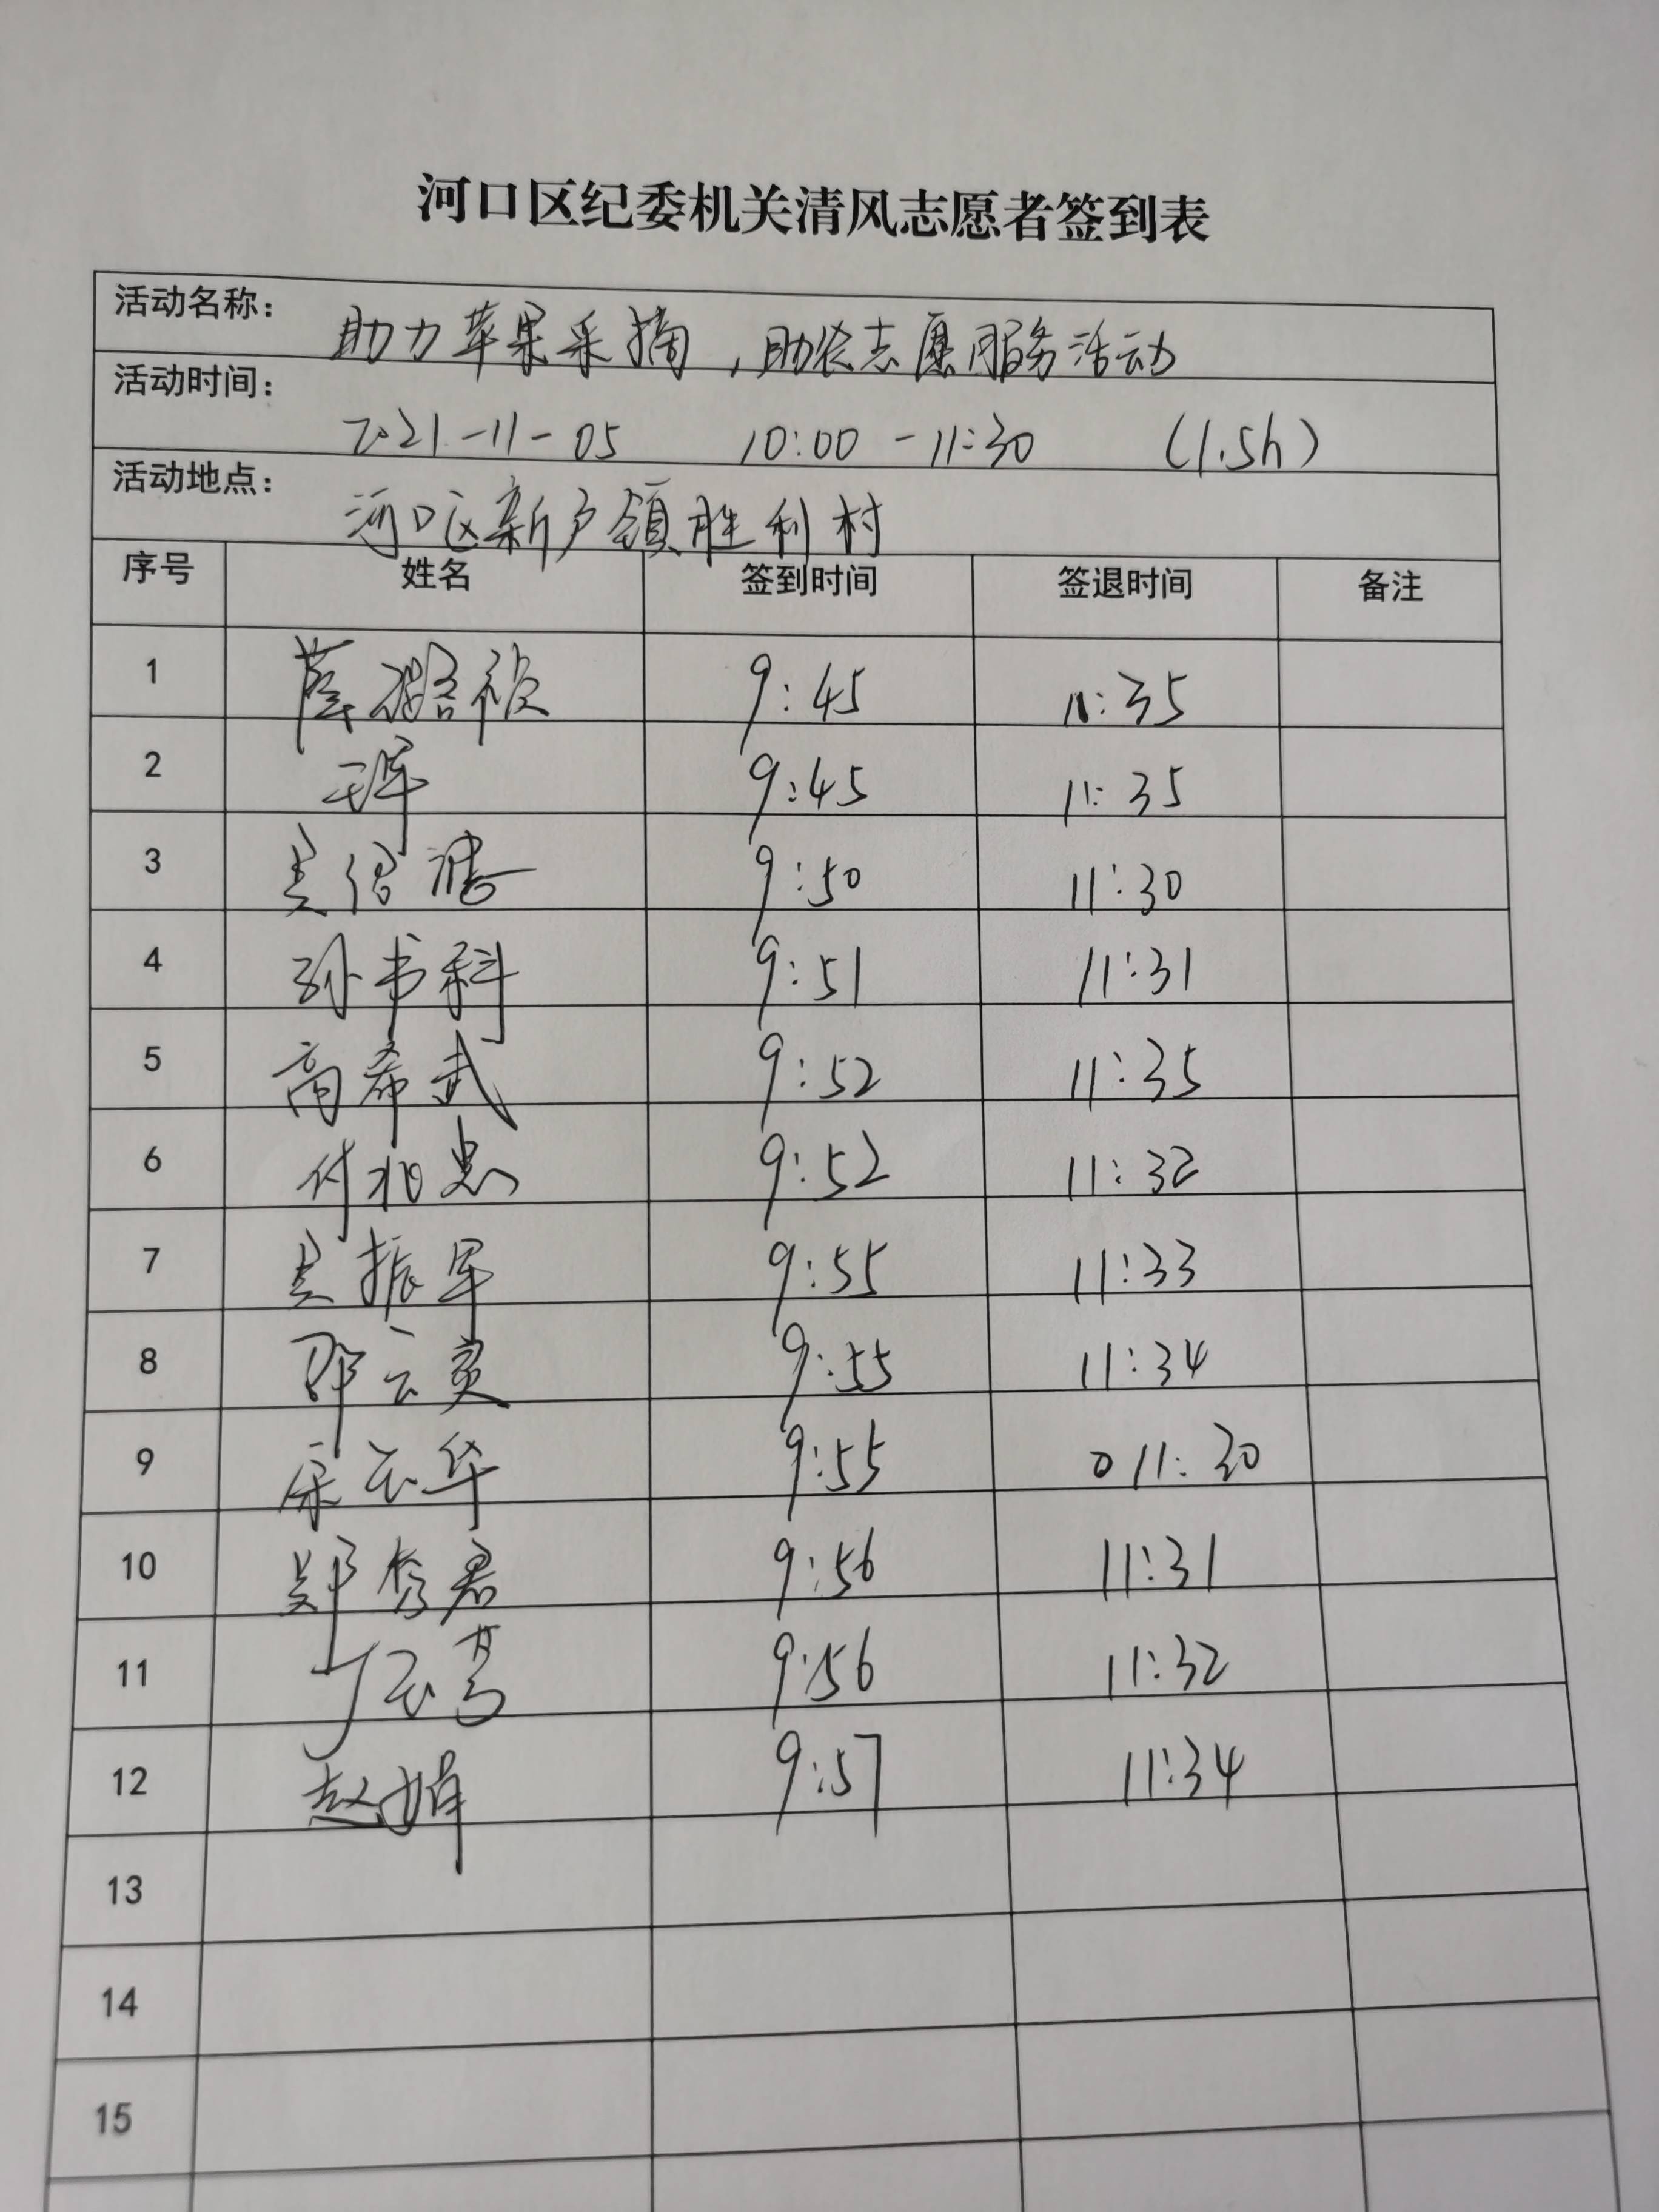 河口区纪委机关清风志愿者签到表
活动名称: 助力苹果采摘,助农志愿服务活动
活动时间: 2021-11-05 10:00-11:30 (1.5h)
活动地点: 河口区新户镇胜利村
序号 姓名 签到时间 签退时间 备注
1 薛 9:45 11:35
2 王军 9:45 11:35
3 吴 9:50 11:30
4 孙书科 9:51 11:31
5 高希武 9:52 11:35
6 付 忠 9:52 11:32
7 吴振军 9:55 11:33
8 邵云英 9:55 11:34
9 宋云华 9:55 0 11:30
10 郑秀君 9:56 11:31
11 9:56 11:32
12 赵娟 9:57 11:34
13
14
15